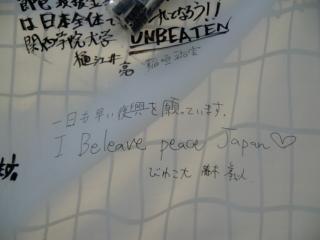 は日本全体で
れるろう!!
関西学院大学
UNBEATEN
樋江井 亮
一日も早い復興を願っています。
I Beleave peace Japan♡
びわこ大